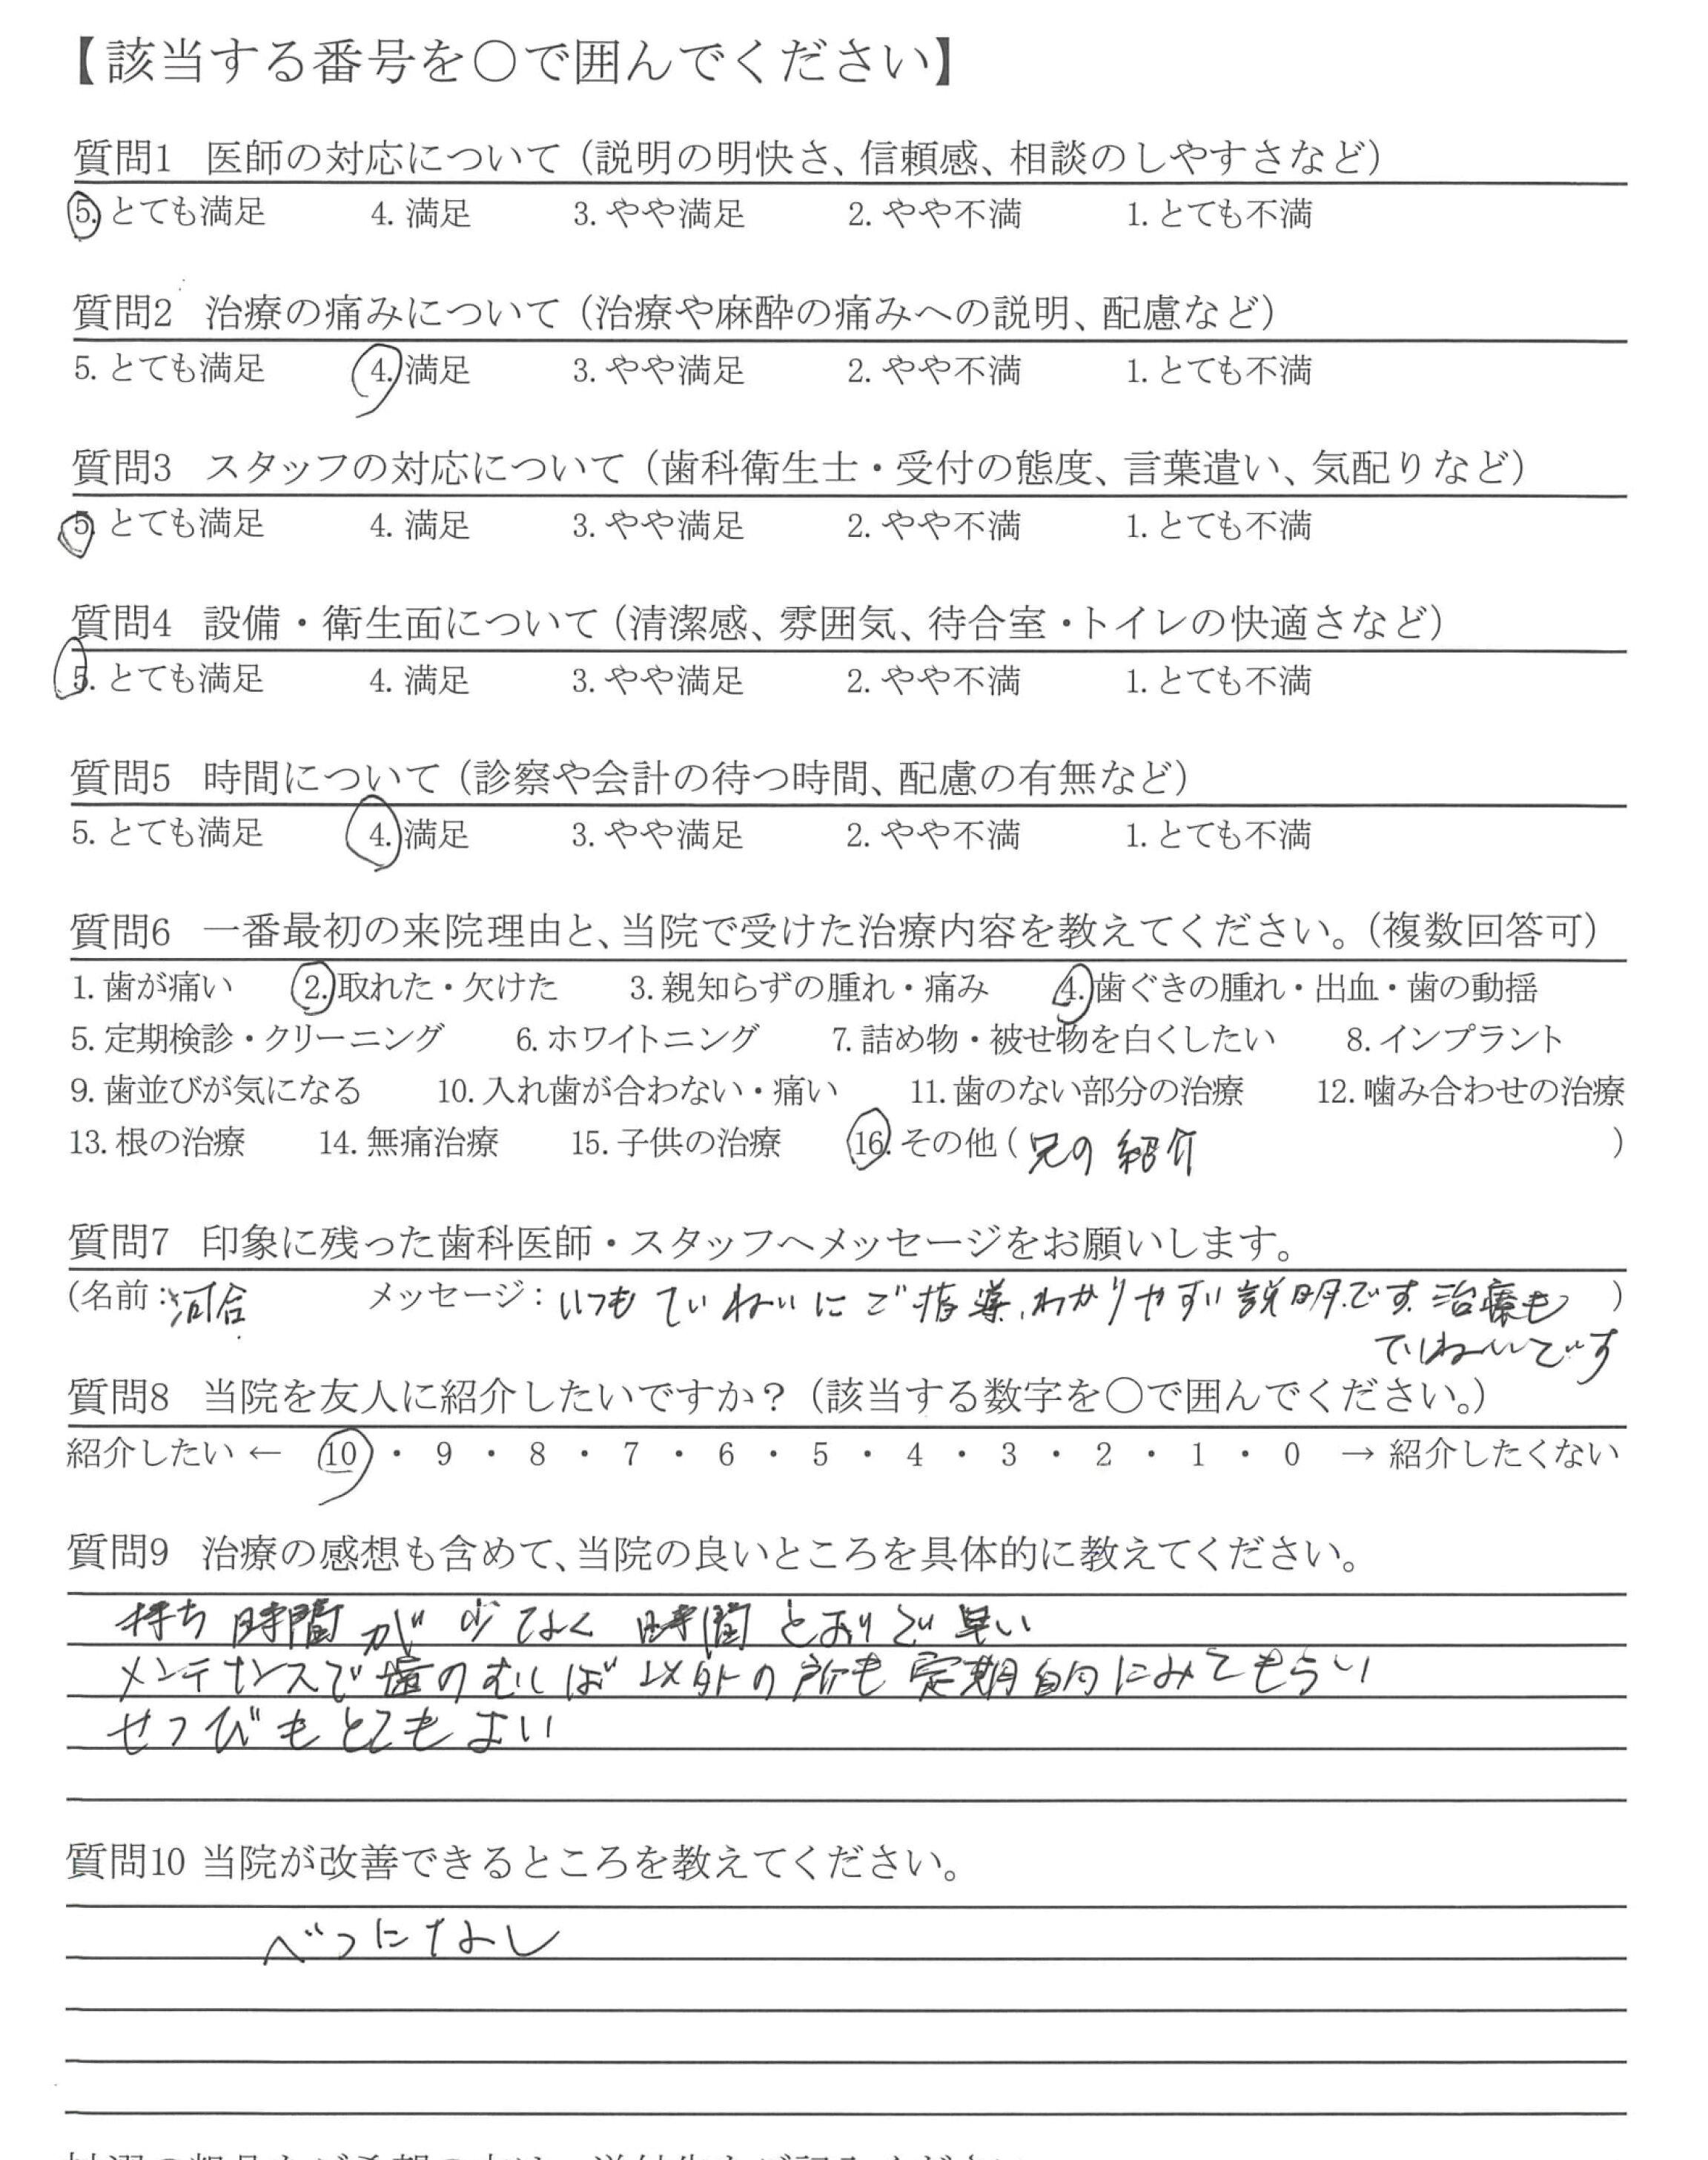 【該当する番号を○で囲んでください】
質問1 医師の対応について（説明の明快さ、信頼感、相談のしやすさなど）
5. とても満足 4. 満足 3. やや満足 2. やや不満 1. とても不満
質問2 治療の痛みについて（治療や麻酔の痛みへの説明、配慮など）
5. とても満足 4. 満足 3. やや満足 2. やや不満 1. とても不満
質問3 スタッフの対応について（歯科衛生士・受付の態度、言葉遣い、気配りなど）
5. とても満足 4. 満足 3. やや満足 2. やや不満 1. とても不満
質問4 設備・衛生面について（清潔感、雰囲気、待合室・トイレの快適さなど）
5. とても満足 4. 満足 3. やや満足 2. やや不満 1. とても不満
質問5 時間について（診察や会計の待つ時間、配慮の有無など）
5. とても満足 4. 満足 3. やや満足 2. やや不満 1. とても不満
質問6 一番最初の来院理由と、当院で受けた治療内容を教えてください。（複数回答可）
1. 歯が痛い 2. 取れた・欠けた 3. 親知らずの腫れ・痛み 4. 歯ぐきの腫れ・出血・歯の動揺
5. 定期検診・クリーニング 6. ホワイトニング 7. 詰め物・被せ物を白くしたい 8. インプラント
9. 歯並びが気になる 10. 入れ歯が合わない・痛い 11. 歯のない部分の治療 12. 噛み合わせの治療
13. 根の治療 14. 無痛治療 15. 子供の治療 16. その他（兄の紹介）
質問7 印象に残った歯科医師・スタッフへメッセージをお願いします。
（名前：河合 メッセージ：いつもていねいにご指導、わかりやすい説明です。治療も）
ていねいです
質問8 当院を友人に紹介したいですか？（該当する数字を○で囲んでください。）
紹介したい ← 10 ・ 9 ・ 8 ・ 7 ・ 6 ・ 5 ・ 4 ・ 3 ・ 2 ・ 1 ・ 0 → 紹介したくない
質問9 治療の感想も含めて、当院の良いところを具体的に教えてください。
待ち時間が少なく時間とおりで早い
メンテナンスで歯のむしば以外の所も定期的にみてもらい
せつびもとてもよい
質問10 当院が改善できるところを教えてください。
べつになし